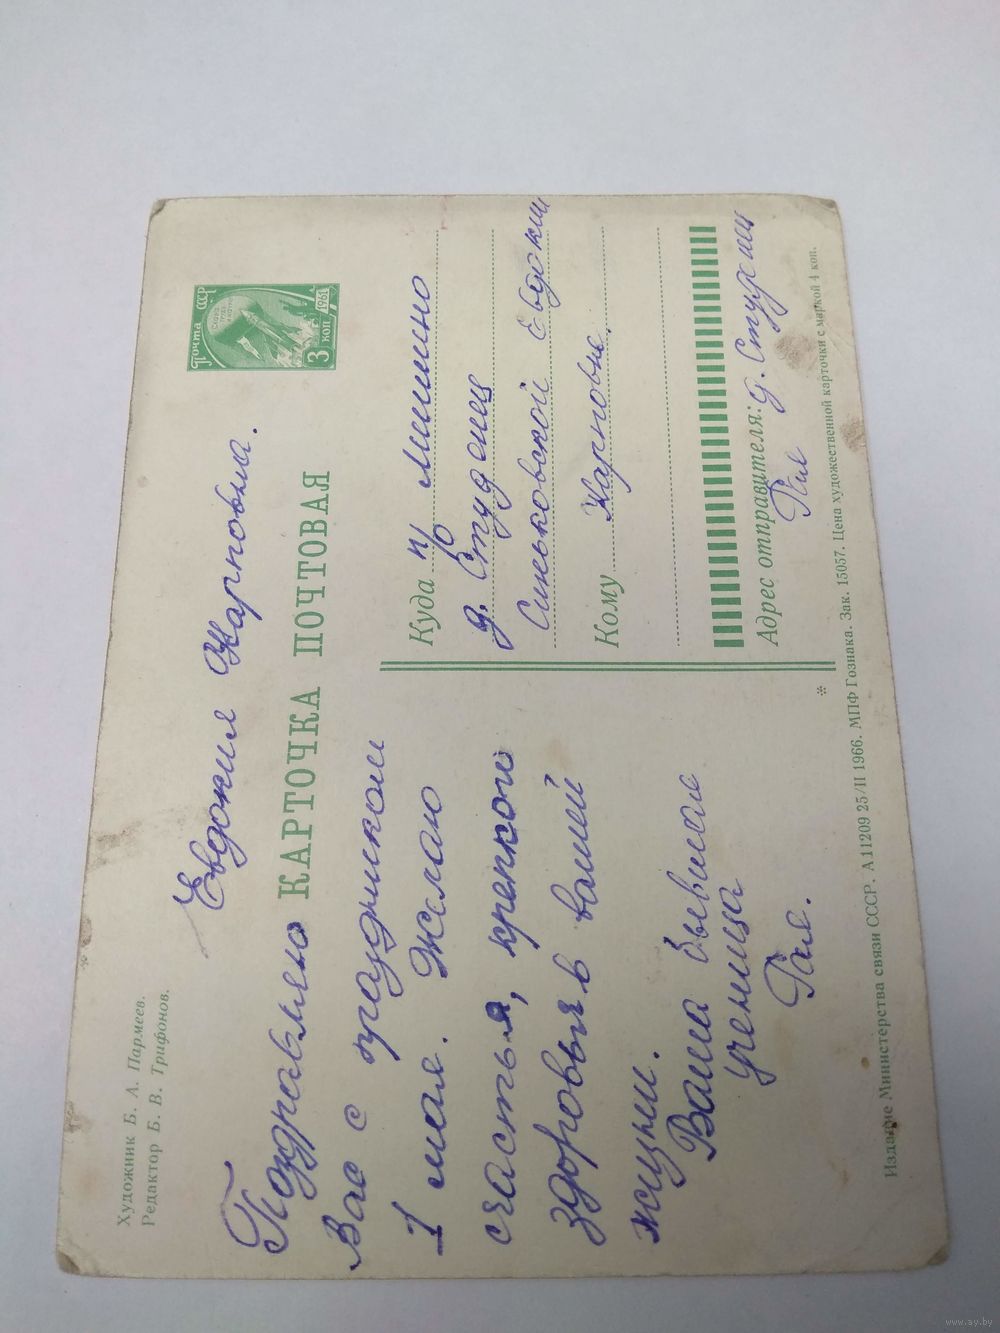 Художник Б. А. Пармеев.
Редактор Б. В. Трифонов.
Почта СССР
1961
3 коп
Евдокия Карповна.
КАРТОЧКА ПОЧТОВАЯ
Поздравляю
Вас с праздником
1 мая. Желаю
счастья, крепкого
здоровья в вашей
жизни.
Ваша бывшая
ученица
Галя.
Куда п/о Мишино
д. Студенец
Синьковской Евдокии
Кому Карповне.
Адрес отправителя: д. Студенец
Галя
Издание Министерства связи СССР. А11209 25/II 1966. МПФ Гознака. Зак. 15057. Цена художественной карточки с маркой 4 коп.
www.ay.by